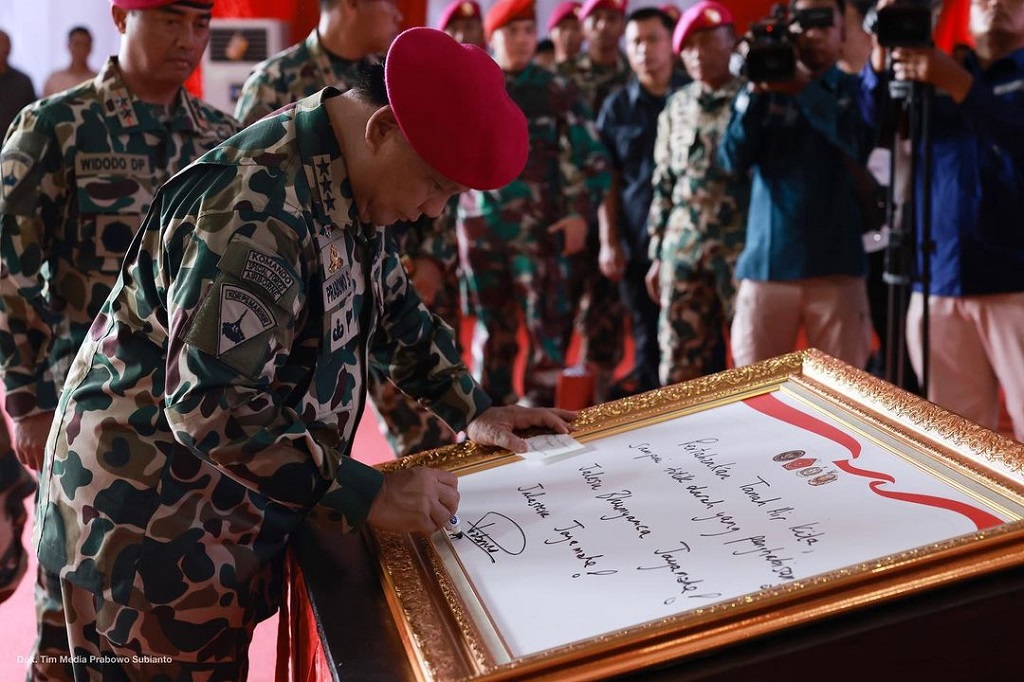 WIDODO DP
KOMANDO
SPECIAL FORCES
AIRBORNE
KOR PS MARINIR
PRABOWO S
Pertahankan Tanah Air kita,
sampai titik darah yang penghabisan
Jalesu Bhumyamca Jayamahe!
Jalesveva Jayamahe!
Dok. Tim Media Prabowo Subianto